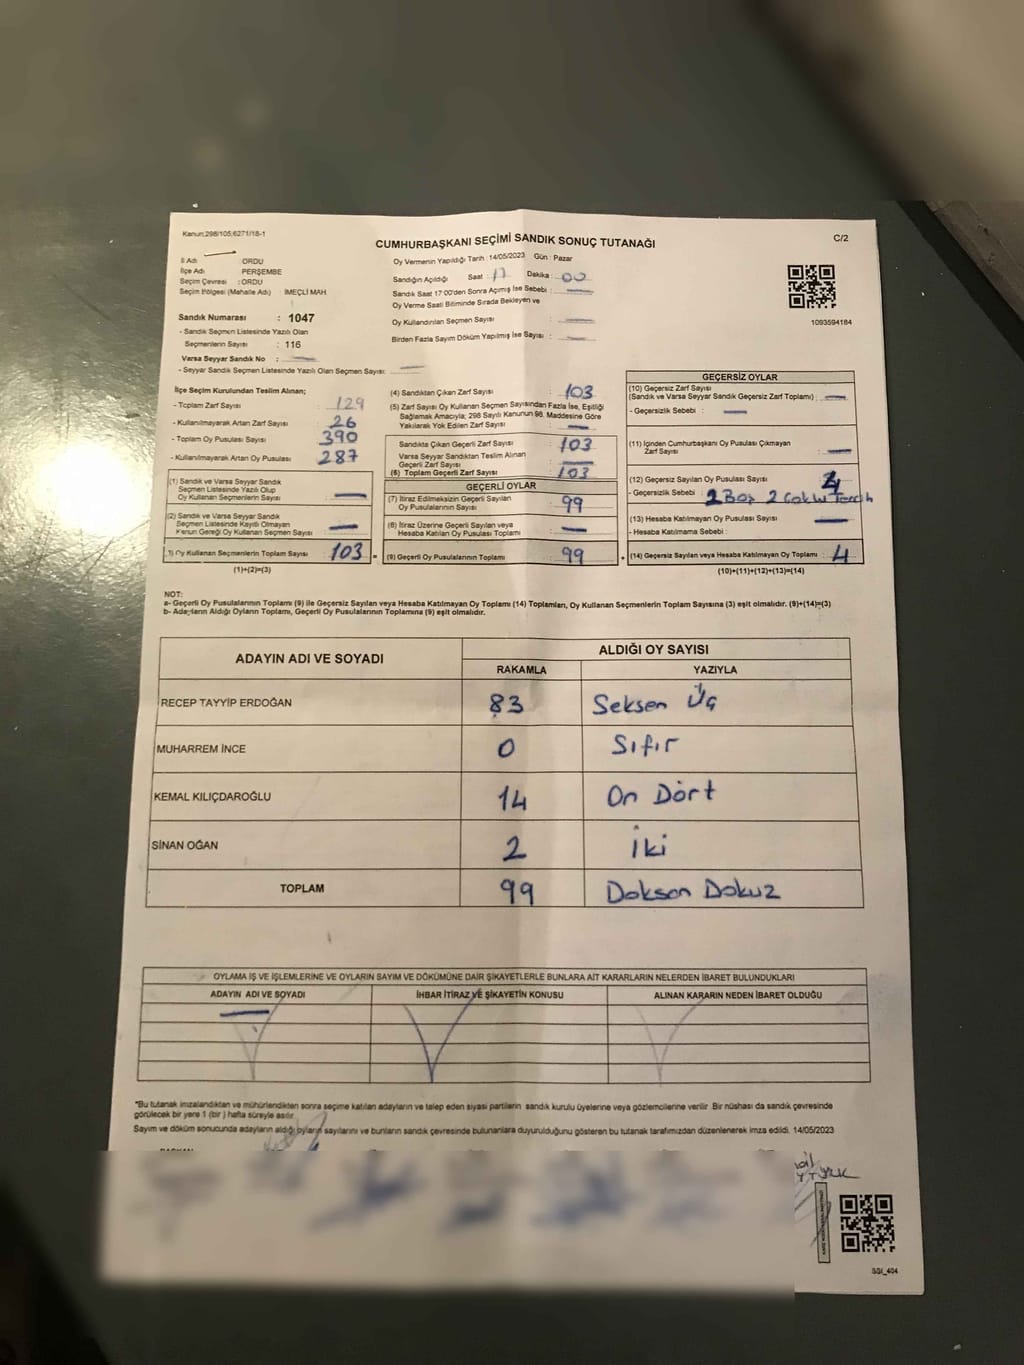 Kanun:298/105;6271/18-1
CUMHURBAŞKANI SEÇİMİ SANDIK SONUÇ TUTANAĞI
C/2
İl Adı ORDU
İlçe Adı PERŞEMBE
Seçim Çevresi : ORDU
Seçim Bölgesi (Mahalle Adı) İMEÇLİ MAH.
Sandık Numarası : 1047
- Sandık Seçmen Listesinde Yazılı Olan
Seçmenlerin Sayısı : 116
Varsa Seyyar Sandık No :
- Seyyar Sandık Seçmen Listesinde Yazılı Olan Seçmen Sayısı:
Oy Vermenin Yapıldığı Tarih : 14/05/2023 Gün : Pazar
Sandığın Açıldığı Saat : 17 Dakika : 00
Sandık Saat 17:00'den Sonra Açılmış İse Sebebi :
Oy Verme Saati Bitiminde Sırada Bekleyen ve
Oy Kullandırılan Seçmen Sayısı :
Birden Fazla Sayım Döküm Yapılmış İse Sayısı :
1093594184
İlçe Seçim Kurulundan Teslim Alınan;
- Toplam Zarf Sayısı : 129
- Kullanılmayarak Artan Zarf Sayısı : 26
- Toplam Oy Pusulası Sayısı : 390
- Kullanılmayarak Artan Oy Pusulası : 287
(1) Sandık ve Varsa Seyyar Sandık
Seçmen Listesinde Yazılı Olup
Oy Kullanan Seçmenlerin Sayısı :
(2) Sandık ve Varsa Seyyar Sandık
Seçmen Listesinde Kayıtlı Olmayan
Kanun Gereği Oy Kullanan Seçmen Sayısı :
Oy Kullanan Seçmenlerin Toplam Sayısı : 103 =
(1)+(2)=(3)
(4) Sandıktan Çıkan Zarf Sayısı : 103
(5) Zarf Sayısı Oy Kullanan Seçmen Sayısından Fazla İse, Eşitliği
Sağlamak Amacıyla; 298 Sayılı Kanunun 98. Maddesine Göre
Yakılarak Yok Edilen Zarf Sayısı :
Sandıkta Çıkan Geçerli Zarf Sayısı : 103
Varsa Seyyar Sandıktan Teslim Alınan
Geçerli Zarf Sayısı :
(6) Toplam Geçerli Zarf Sayısı : 103
GEÇERLİ OYLAR
(7) İtiraz Edilmeksizin Geçerli Sayılan
Oy Pusulalarının Sayısı : 99
(8) İtiraz Üzerine Geçerli Sayılan veya
Hesaba Katılan Oy Pusulası Toplamı :
(9) Geçerli Oy Pusulalarının Toplamı : 99 +
GEÇERSİZ OYLAR
(10) Geçersiz Zarf Sayısı
(Sandık ve Varsa Seyyar Sandık Geçersiz Zarf Toplamı) :
- Geçersizlik Sebebi :
(11) İçinden Cumhurbaşkanı Oy Pusulası Çıkmayan
Zarf Sayısı :
(12) Geçersiz Sayılan Oy Pusulası Sayısı : 4
- Geçersizlik Sebebi : 2 Boş 2 Çoklu Tercih
(13) Hesaba Katılmayan Oy Pusulası Sayısı :
- Hesaba Katılmama Sebebi :
(14) Geçersiz Sayılan veya Hesaba Katılmayan Oy Toplamı : 4
(10)+(11)+(12)+(13)=(14)
NOT:
a- Geçerli Oy Pusulalarının Toplamı (9) ile Geçersiz Sayılan veya Hesaba Katılmayan Oy Toplamı (14) Toplamları, Oy Kullanan Seçmenlerin Toplam Sayısına (3) eşit olmalıdır. (9)+(14)=(3)
b- Adayların Aldığı Oyların Toplamı, Geçerli Oy Pusulalarının Toplamına (9) eşit olmalıdır.
ADAYIN ADI VE SOYADI ALDIĞI OY SAYISI
RAKAMLA YAZIYLA
RECEP TAYYİP ERDOĞAN 83 Seksen Üç
MUHARREM İNCE 0 Sıfır
KEMAL KILIÇDAROĞLU 14 On Dört
SİNAN OĞAN 2 İki
TOPLAM 99 Doksan Dokuz
OYLAMA İŞ VE İŞLEMLERİNE VE OYLARIN SAYIM VE DÖKÜMÜNE DAİR ŞİKAYETLERLE BUNLARA AİT KARARLARIN NELERDEN İBARET BULUNDUKLARI
ADAYIN ADI VE SOYADI İHBAR İTİRAZ VE ŞİKAYETİN KONUSU ALINAN KARARIN NEDEN İBARET OLDUĞU
*Bu tutanak imzalandıktan ve mühürlendikten sonra seçime katılan adayların ve talep eden siyasi partilerin sandık kurulu üyelerine veya gözlemcilerine verilir. Bir nüshası da sandık çevresinde
görülecek bir yere 1 (bir ) hafta süreyle asılır.
Sayım ve döküm sonucunda adayların aldığı oyların sayılarını ve bunların sandık çevresinde bulunanlara duyurulduğunu gösteren bu tutanak tarafımızdan düzenlenerek imza edildi. 14/05/2023
SSI_404